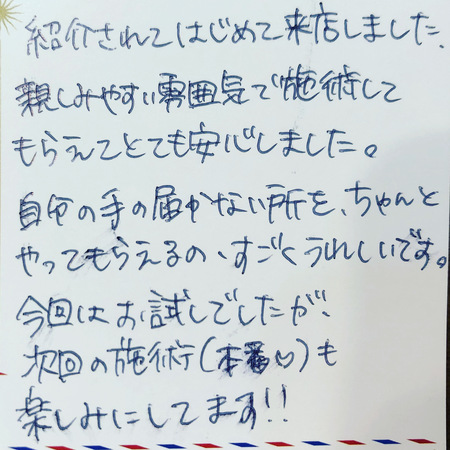 紹介されてはじめて来店しました。
親しみやすい雰囲気で施術して
もらえてとても安心しました。
自分の手の届かない所を、ちゃんと
やってもらえるの、すごくうれしいです。
今回はお試しでしたが、
次回の施術(本番♡)も
楽しみにしてます!!